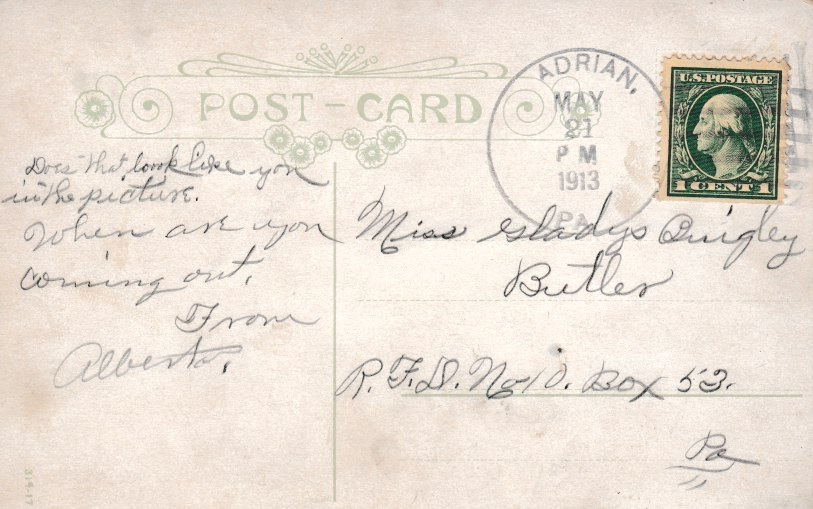 POST-CARD
ADRIAN,
MAY
21
P M
1913
PA.
U.S. POSTAGE
1 CENT 1
Does that look like you
in the picture.
When are you
coming out.
From
Alberta.
Miss Gladys Quigley
Butler
R.F.D. No 10. Box 53.
Pa